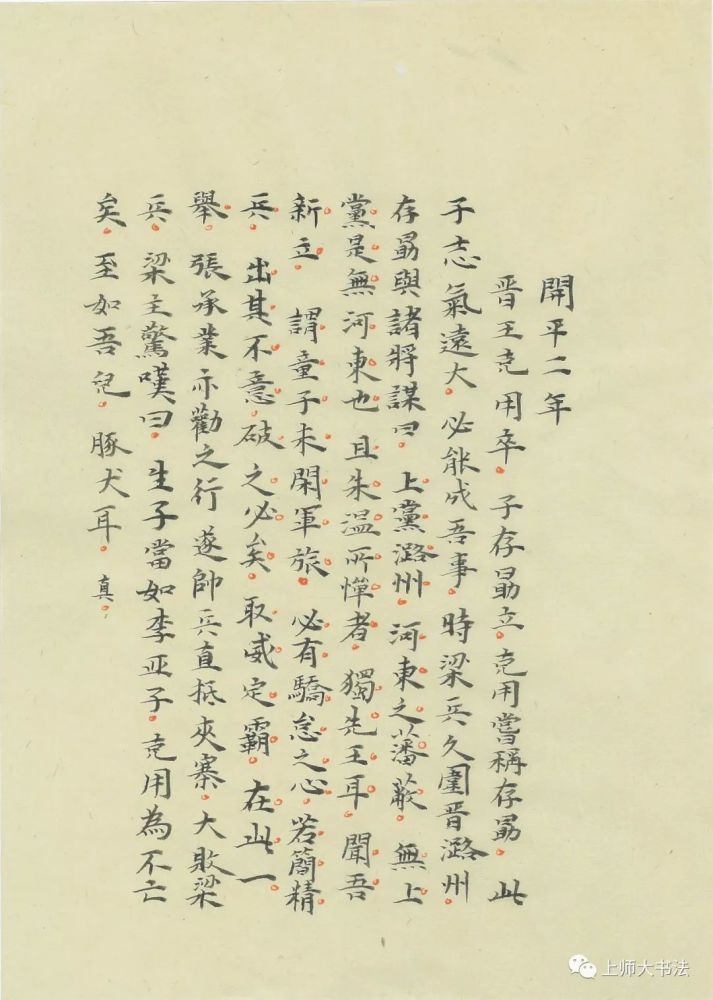 開平二年
晋王克用卒。子存勗立。克用嘗稱存勗。此
子志氣遠大。必能成吾事。時梁兵久圍晋潞州。
存勗與諸將謀曰。上黨潞州。河東之蕃蔽。無上
黨。是無河東也。且朱温所憚者。獨先王耳。聞吾
新立。謂童子未閑軍旅。必有驕怠之心。若簡精
兵。出其不意。破之必矣。取威定霸。在此一
舉。張承業亦勸之行。遂帥兵直抵夾寨。大敗梁
兵。梁主驚嘆曰。生子當如李亚子。克用為不亡
矣。至如吾兒。豚犬耳。真。
上师大书法